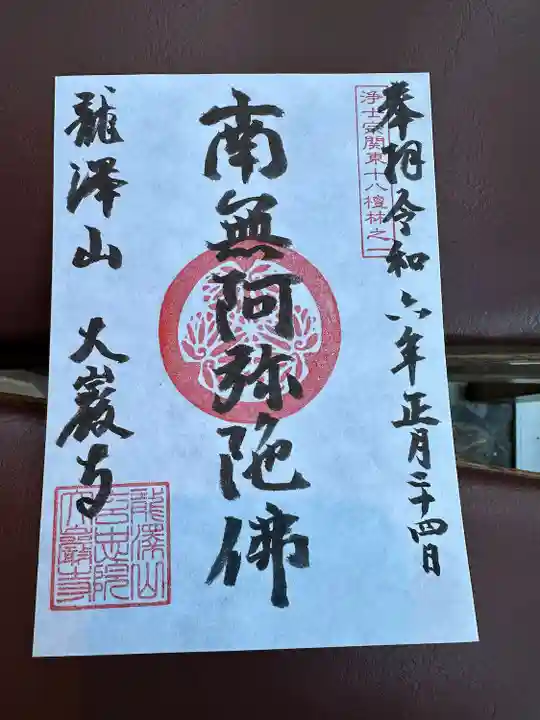 奉拝 令和六年正月二十四日
浄土宗関東十八檀林之一
南無阿弥陀佛
龍澤山 大巌寺
龍澤山
玄忠院
大巖寺